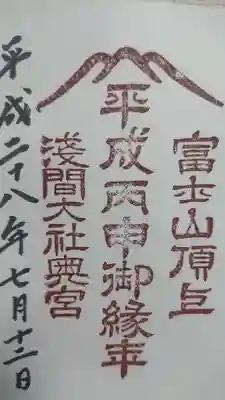 富士山頂上
平成丙申御縁年
淺間大社奥宮
平成二十八年七月十二日